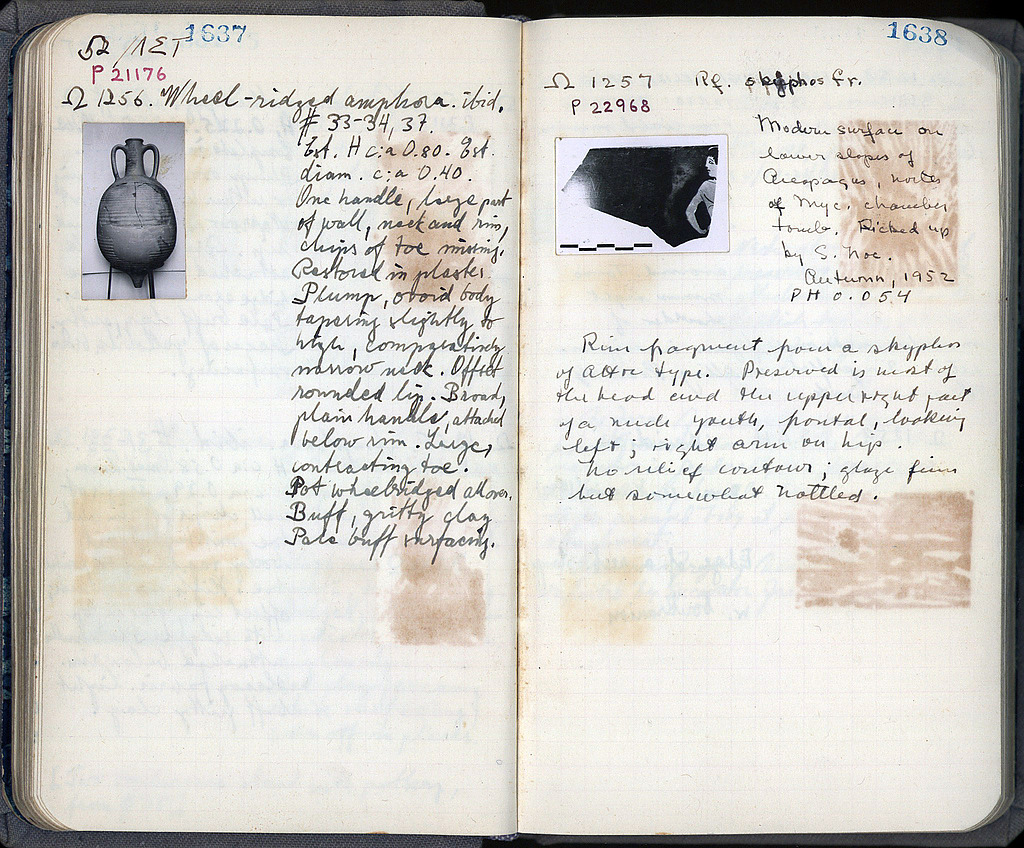 1637
Ω /ΛΣΤ
P 21176
Ω 1256. Wheel-ridged amphora. ibid.
# 33-34, 37.
Est. H c:a 0.80. Est.
diam. c:a 0.40.
One handle, large part
of wall, neck and rim,
chips of toe missing.
Restored in plaster.
Plump, ovoid body
tapering slightly to
high, comparatively
narrow neck. Offset
rounded lip. Broad,
plain handle, attached
below rim. Large,
contrasting toe.
Pot wheelridged all over.
Buff, gritty clay
Pale buff surfacing.
1638
Ω 1257 Rf. skyphos Fr.
P 22968
Modern surface on
lower slopes of
Areopagus, north
of Myc. chamber
tomb. Picked up
by S. Noe.
Autumn, 1952
PH 0.054
Rim fragment from a skyphos
of Attic type. Preserved is most of
the head and the upper right part
of a nude youth, frontal, looking
left; right arm on hip.
No relief contour; glaze firm
but somewhat mottled.